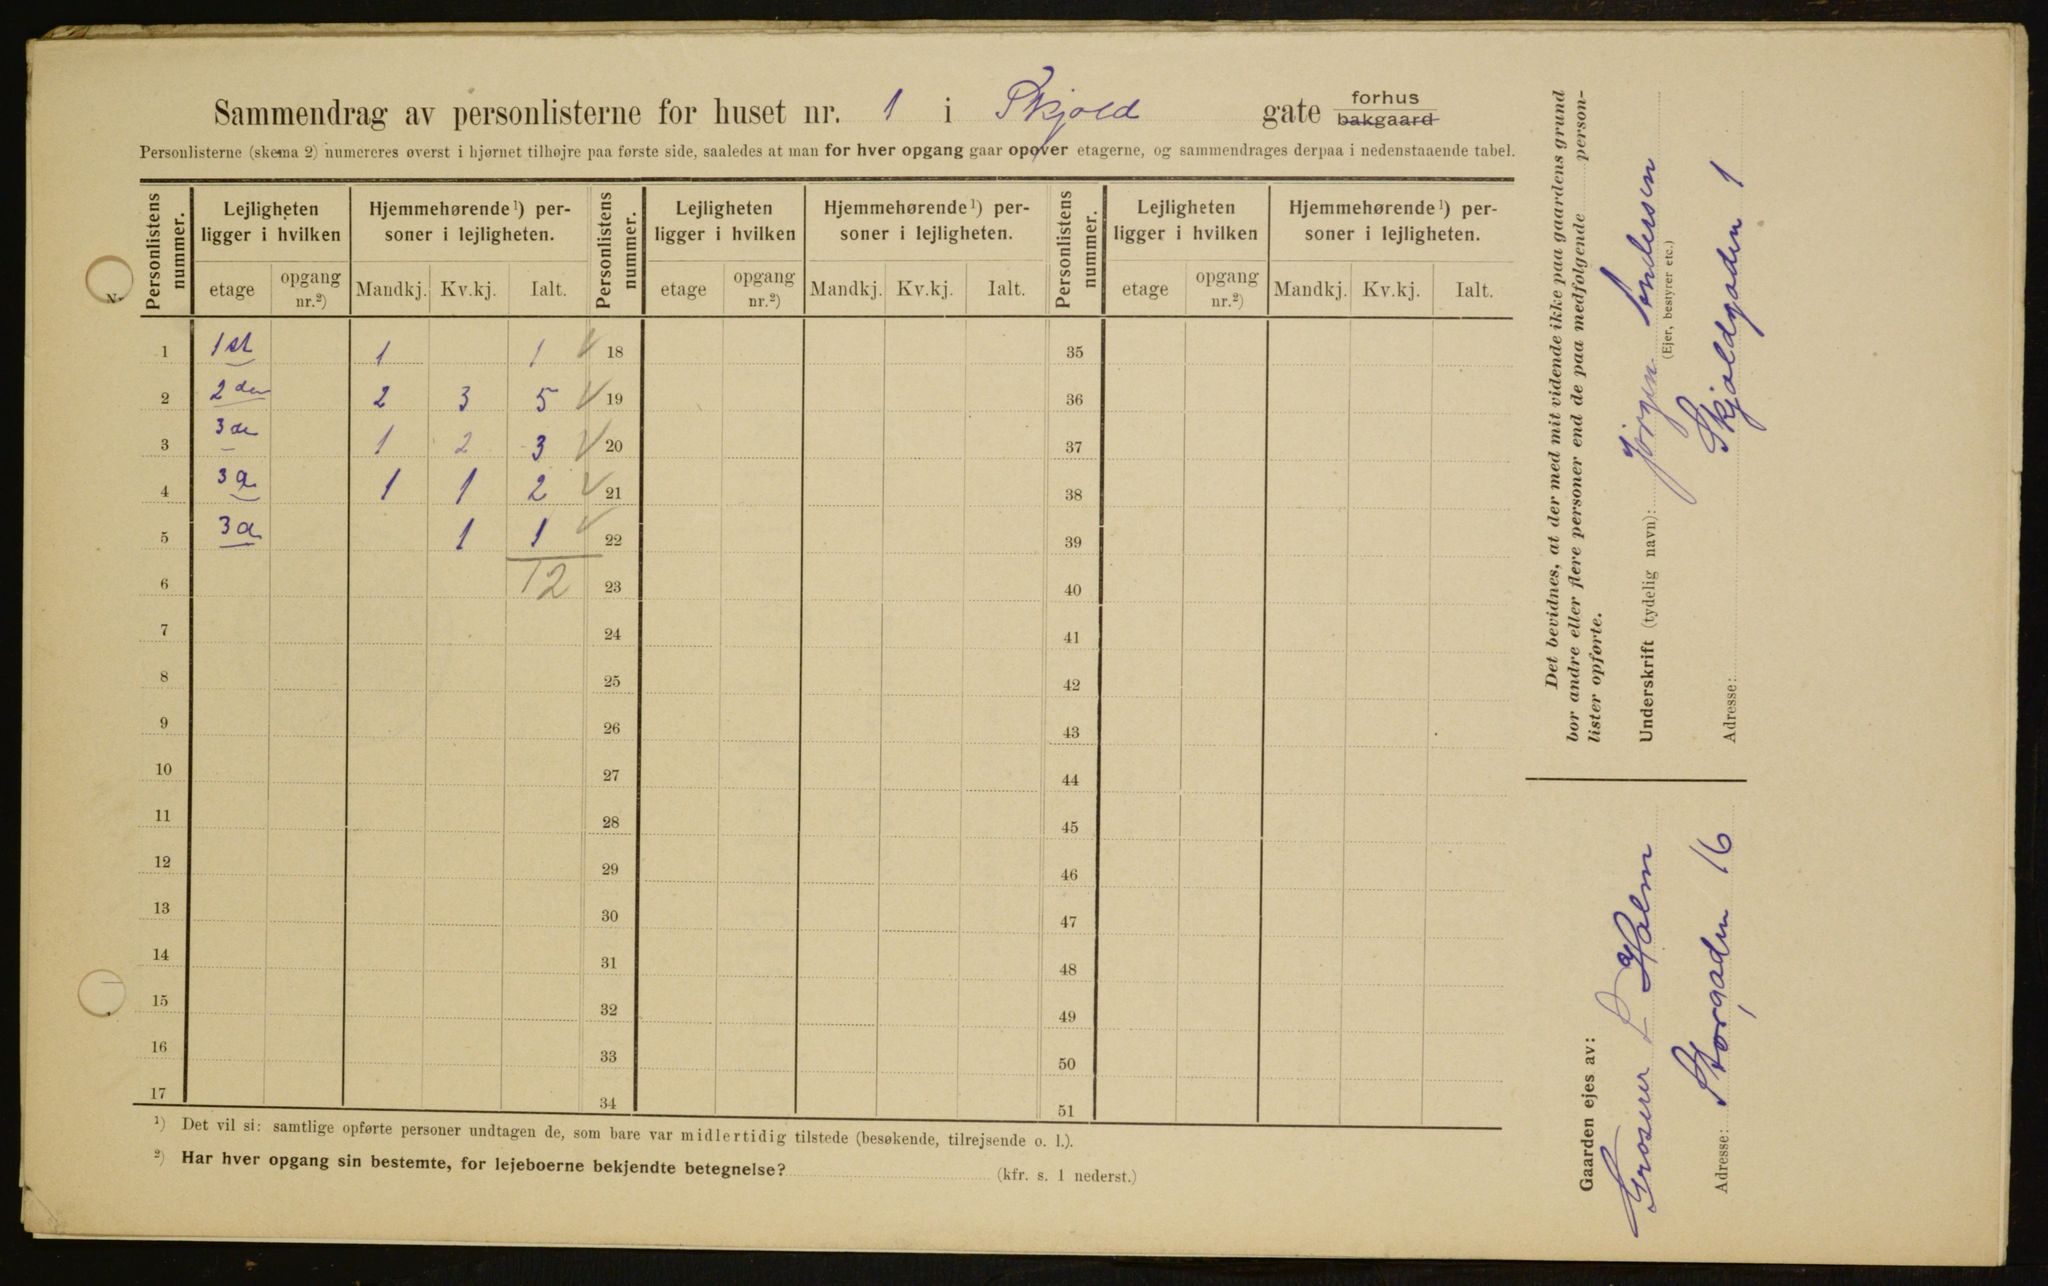 Sammendrag av personlisterne for huset nr. 1 i Skjold gate forhus bakgaard
Personlisterne (skema 2) numereres øverst i hjørnet tilhøjre paa første side, saaledes at man for hver opgang gaar opover etagerne, og sammendrages derpaa i nedenstaaende tabel.
Personlistens nummer. Lejligheten ligger i hvilken Hjemmehørende ¹) personer i lejligheten. Personlistens nummer. Lejligheten ligger i hvilken Hjemmehørende ¹) personer i lejligheten. Personlistens nummer. Lejligheten ligger i hvilken Hjemmehørende ¹) personer i lejligheten.
etage opgang nr.²) Mandkj. Kv.kj. Ialt. etage opgang nr.²) Mandkj. Kv.kj. Ialt. etage opgang nr.²) Mandkj. Kv.kj. Ialt.
1 1st 1 1 18 35
2 2den 2 3 5 19 36
3 3de 1 2 3 20 37
4 3de 1 1 2 21 38
5 3d 1 1 22 39
6 12 23 40
7 24 41
8 25 42
9 26 43
10 27 44
11 28 45
12 29 46
13 30 47
14 31 48
15 32 49
16 33 50
17 34 51
¹) Det vil si: samtlige opførte personer undtagen de, som bare var midlertidig tilstede (besøkende, tilrejsende o. l.).
²) Har hver opgang sin bestemte, for lejeboerne bekjendte betegnelse? (kfr. s. 1 nederst.)
Det bevidnes, at der med mit vidende ikke paa gaardens grund
bor andre eller flere personer end de paa medfølgende person-
lister opførte.
Underskrift (tydelig navn): Jörgen Andersen
(Ejer, bestyrer etc.)
Adresse: Skjoldgaden 1
Gaarden ejes av:
Grosserer Holm
Adresse: Storgaden 16